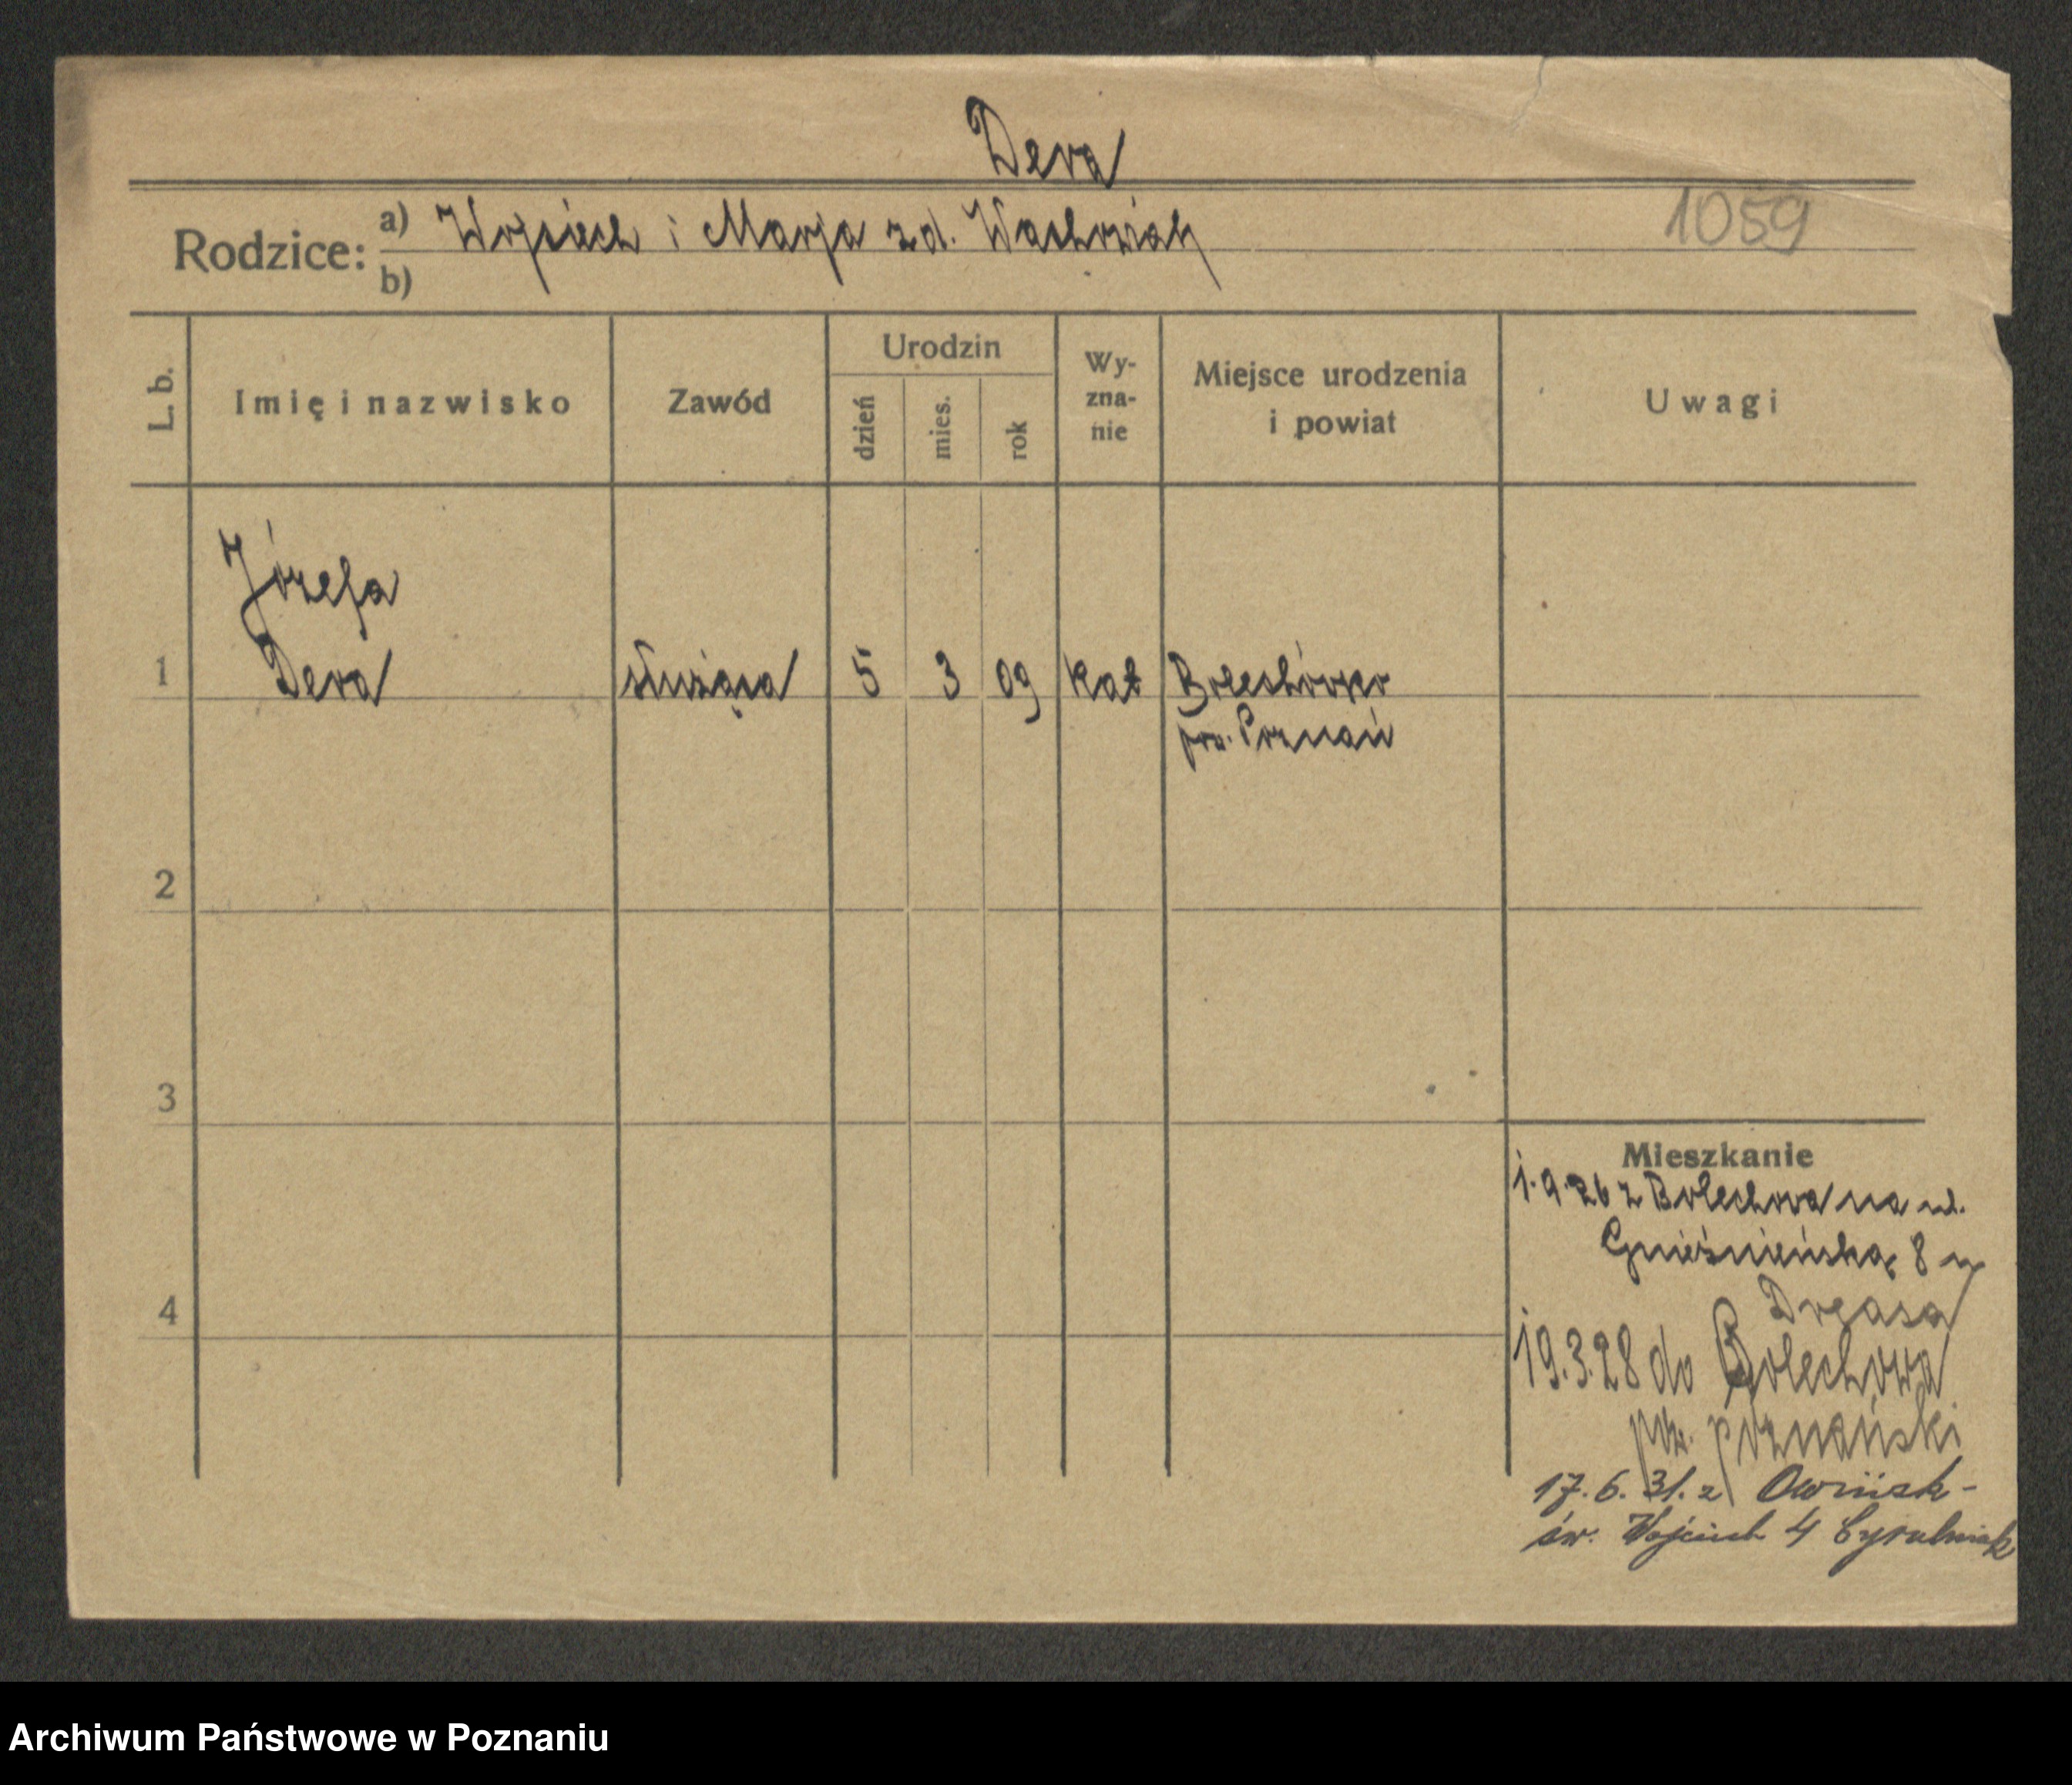 Dera
1059
Rodzice: a) Wojciech i Marja z d. Wachowiak
b)
L. b.
Imię i nazwisko
Zawód
Urodzin
dzień
mies.
rok
Wy-
zna-
nie
Miejsce urodzenia
i powiat
Uwagi
Józefa
1 Dera służąca 5 3 09 kat Bolechówko
pow. Poznań
2
3
4
Mieszkanie
1.9.26 z Bolechowa na ul.
Gnieźnieńską 8 u
19.3.28 do Bolechowa
pow. poznański
17.6.31. z Owińsk -
św. Wojciech 4 Cyrulniak
Archiwum Państwowe w Poznaniu